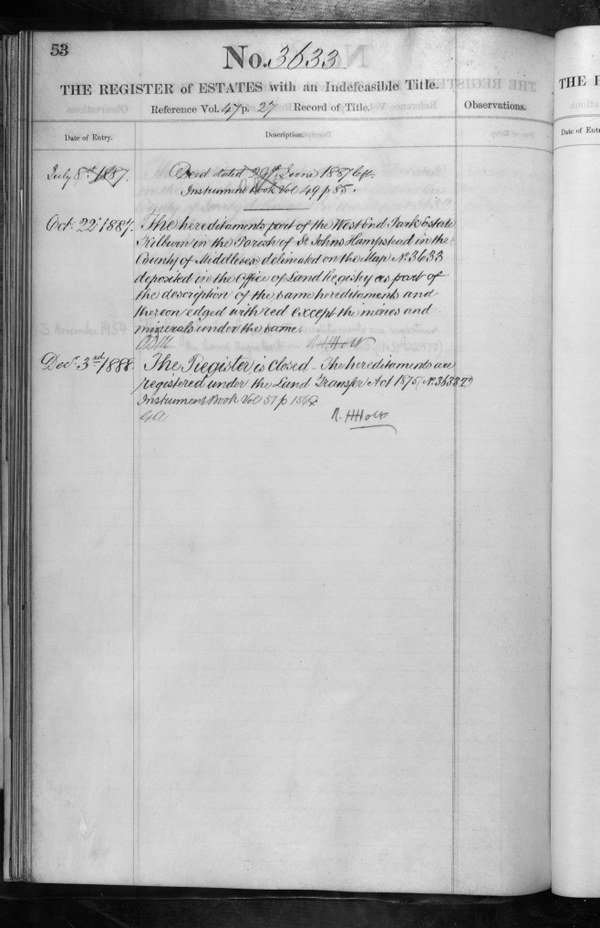 53
No. 3633
THE REGISTER of ESTATES with an Indefeasible Title.
Reference Vol. 47 p. 27 Record of Title.
Observations.
Date of Entry.
Description.
July 8th 1887.
Deed dated 29th June 1887
Instrument Book Vol 49 p 85.
Oct. 22d 1887.
The hereditaments part of the West End Park Estate
Kilburn in the Parish of St Johns Hampstead in the
County of Middlesex delineated on the Map No. 3633
deposited in the Office of Land Registry as part of
the description of the same hereditaments and
thereon edged with red except the mines and
minerals under the same.
Decr. 3rd 1888.
The Register is closed - The hereditaments are
registered under the Land Transfer Act 1875,
Instrument Book Vol 51 p
R. H Holt
THE R
Date of Entr